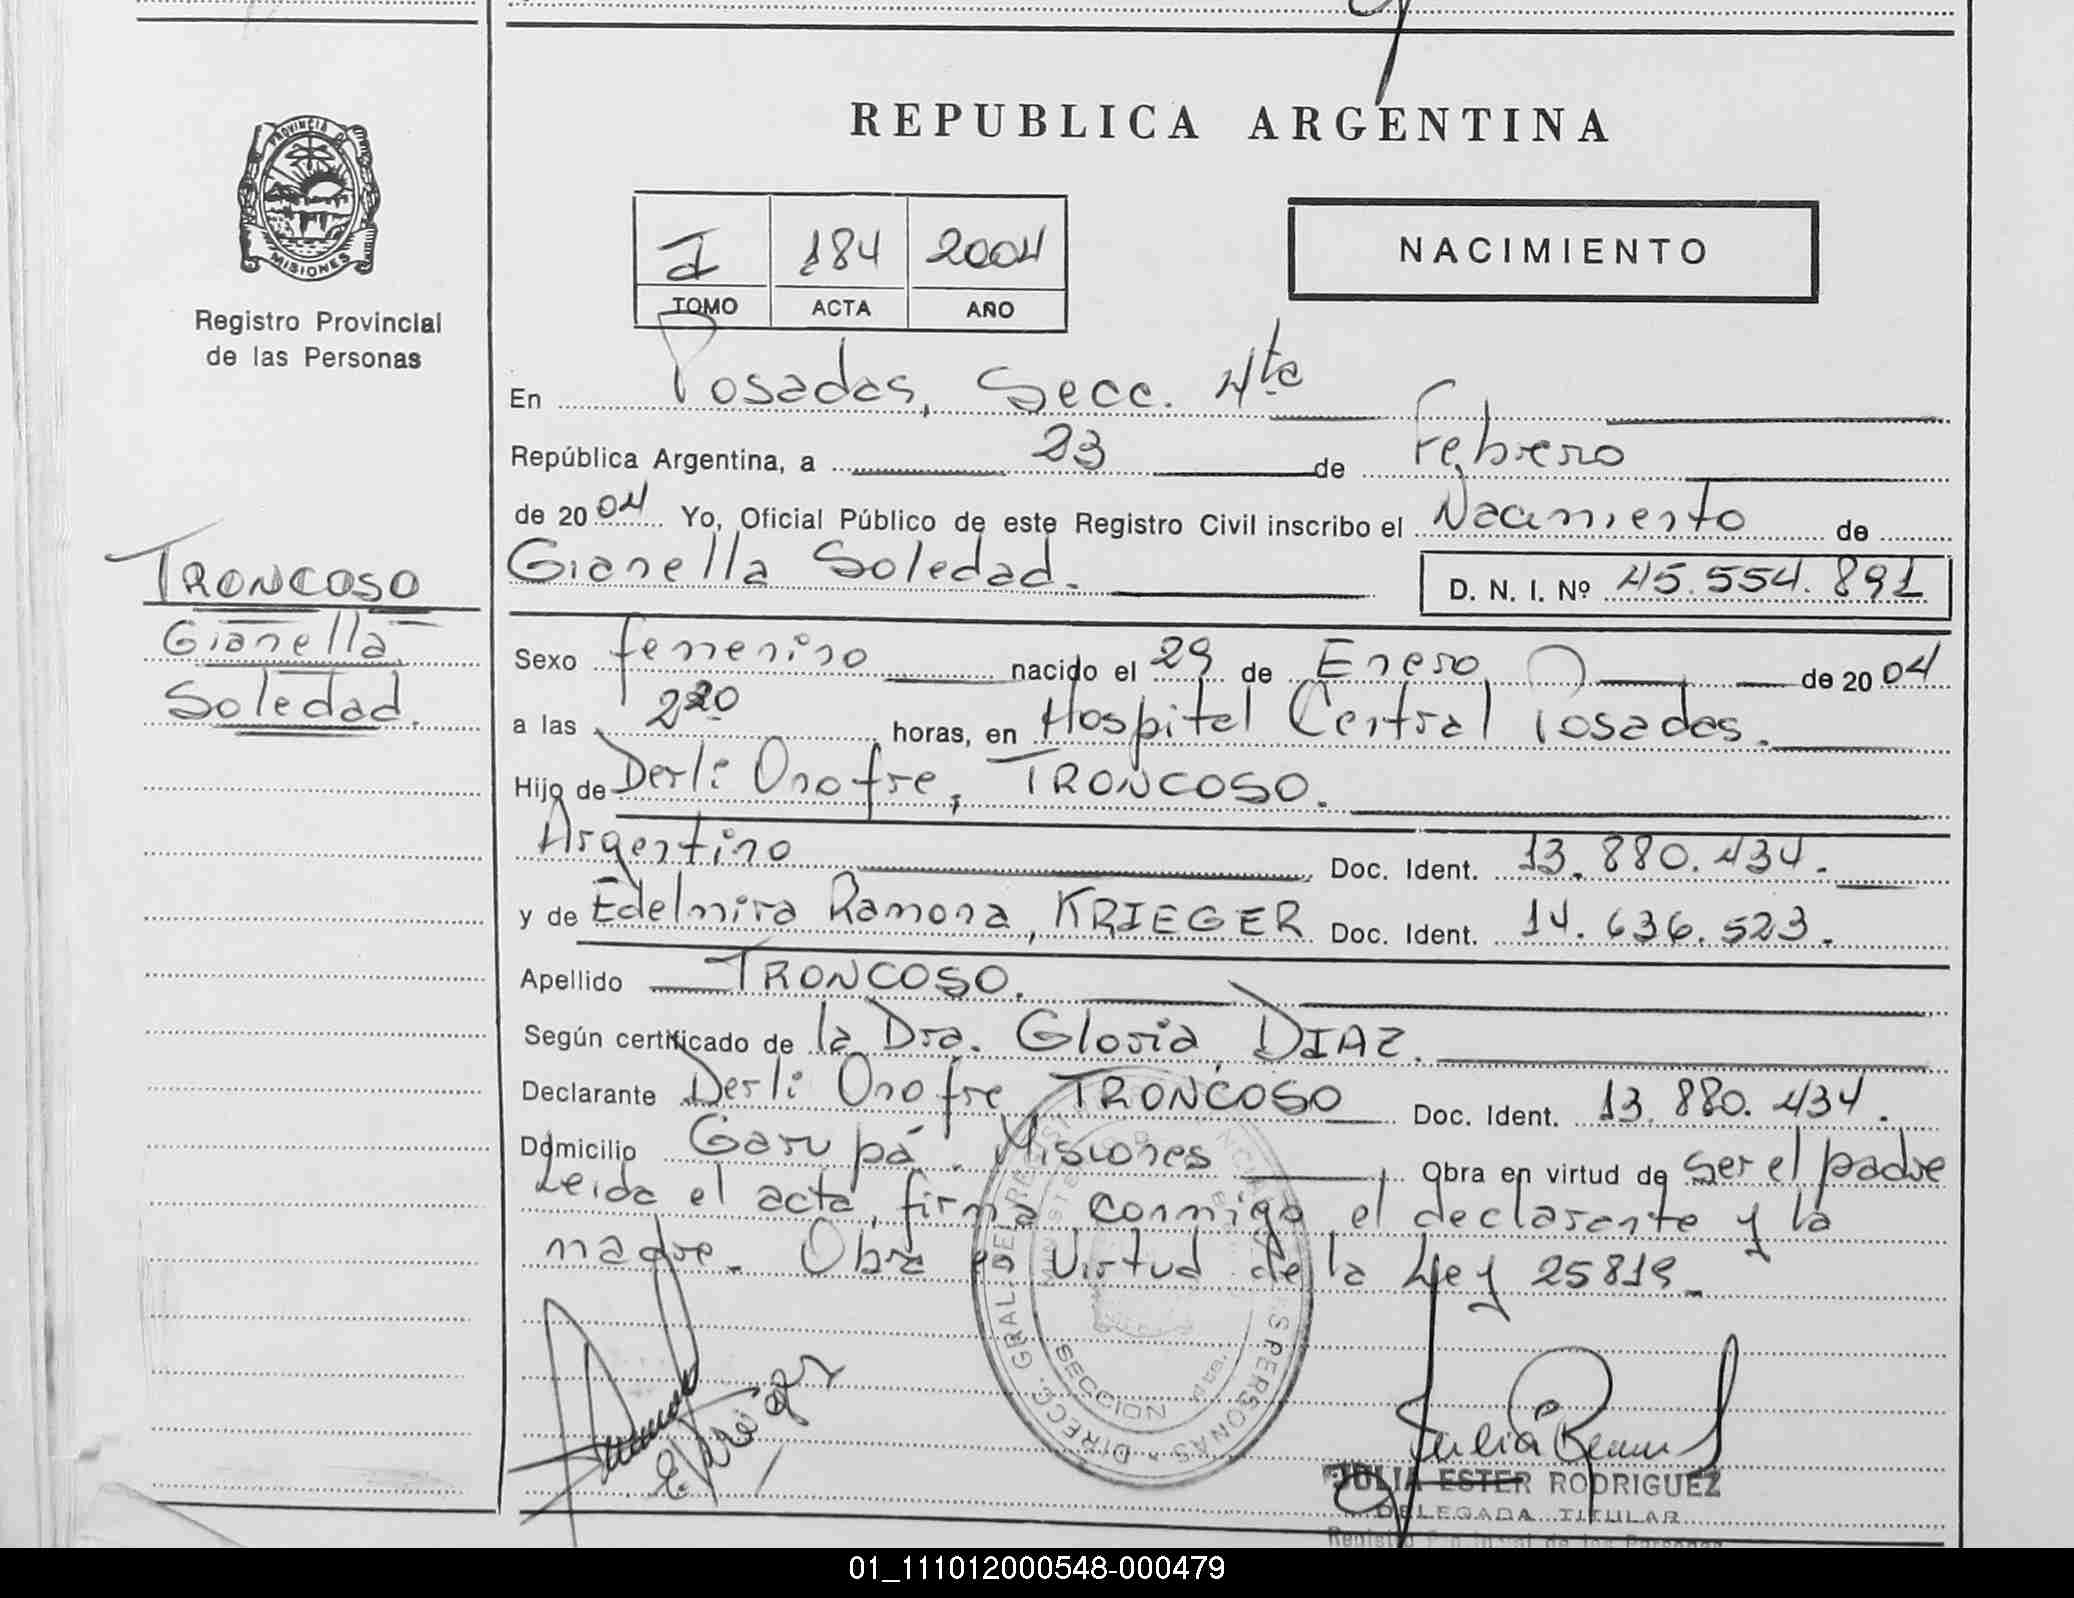 REPUBLICA ARGENTINA
PROVINCIA DE
MISIONES
Registro Provincial
de las Personas
I 184 2004
TOMO ACTA AÑO
NACIMIENTO
En Posadas, Secc. 4ta
República Argentina, a 23 de Febrero
de 2004 Yo, Oficial Público de este Registro Civil inscribo el Nacimiento de
Gianella Soledad.
D. N. I. Nº 45.554.891
TRONCOSO
Gianella
Soledad.
Sexo femenino nacido el 29 de Enero de 2004
a las 220 horas, en Hospital Central Posadas.
Hijo de Derli Onofre, TRONCOSO.
Argentino Doc. Ident. 13.880.434.
y de Edelmira Ramona, KRIEGER Doc. Ident. 14.636.523.
Apellido TRONCOSO.
Según certificado de la Dra. Gloria DIAZ.
Declarante Derli Onofre TRONCOSO Doc. Ident. 13.880.434.
Domicilio Garupá. Misiones Obra en virtud de ser el padre
Leida el acta, firma conmigo el declarante y la
madre. Obra en Virtud de la Ley 25819.
DIRECC. GRAL. DE PERSONAS
SECCION
E Krieger
JULIA ESTER RODRIGUEZ
DELEGADA TITULAR
01_111012000548-000479